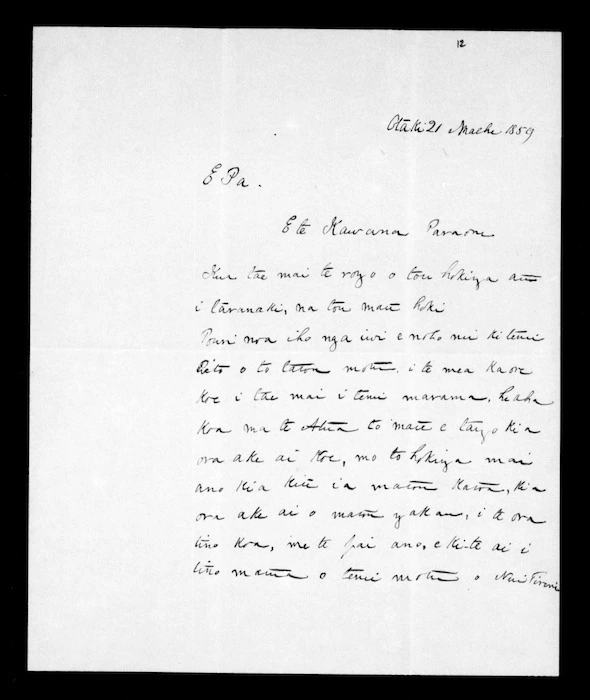 12
Otaki 21 Maehe 1859
E Pa.
E te Kawana Paraone
Kua tae mai te rogo o tou hokiga atu
i taranaki, na tou mate hoki
Pouri noa iho nga iwi e noho nei ki tenei
Pito o to tatou motu. i te mea Kaore
Koe i tae mai i tenei marama. heaha
Koa ma te Atua to mate e tango kia
ora ake ai Koe, mo to hokiga mai
ano Kia Kite ia matou Katoa, Kia
ora ake ai o matou gakau, i te ora
tino Koa, me te pai ano, e ki-te ai i
tino matua o tenei motu o Nui Tireni